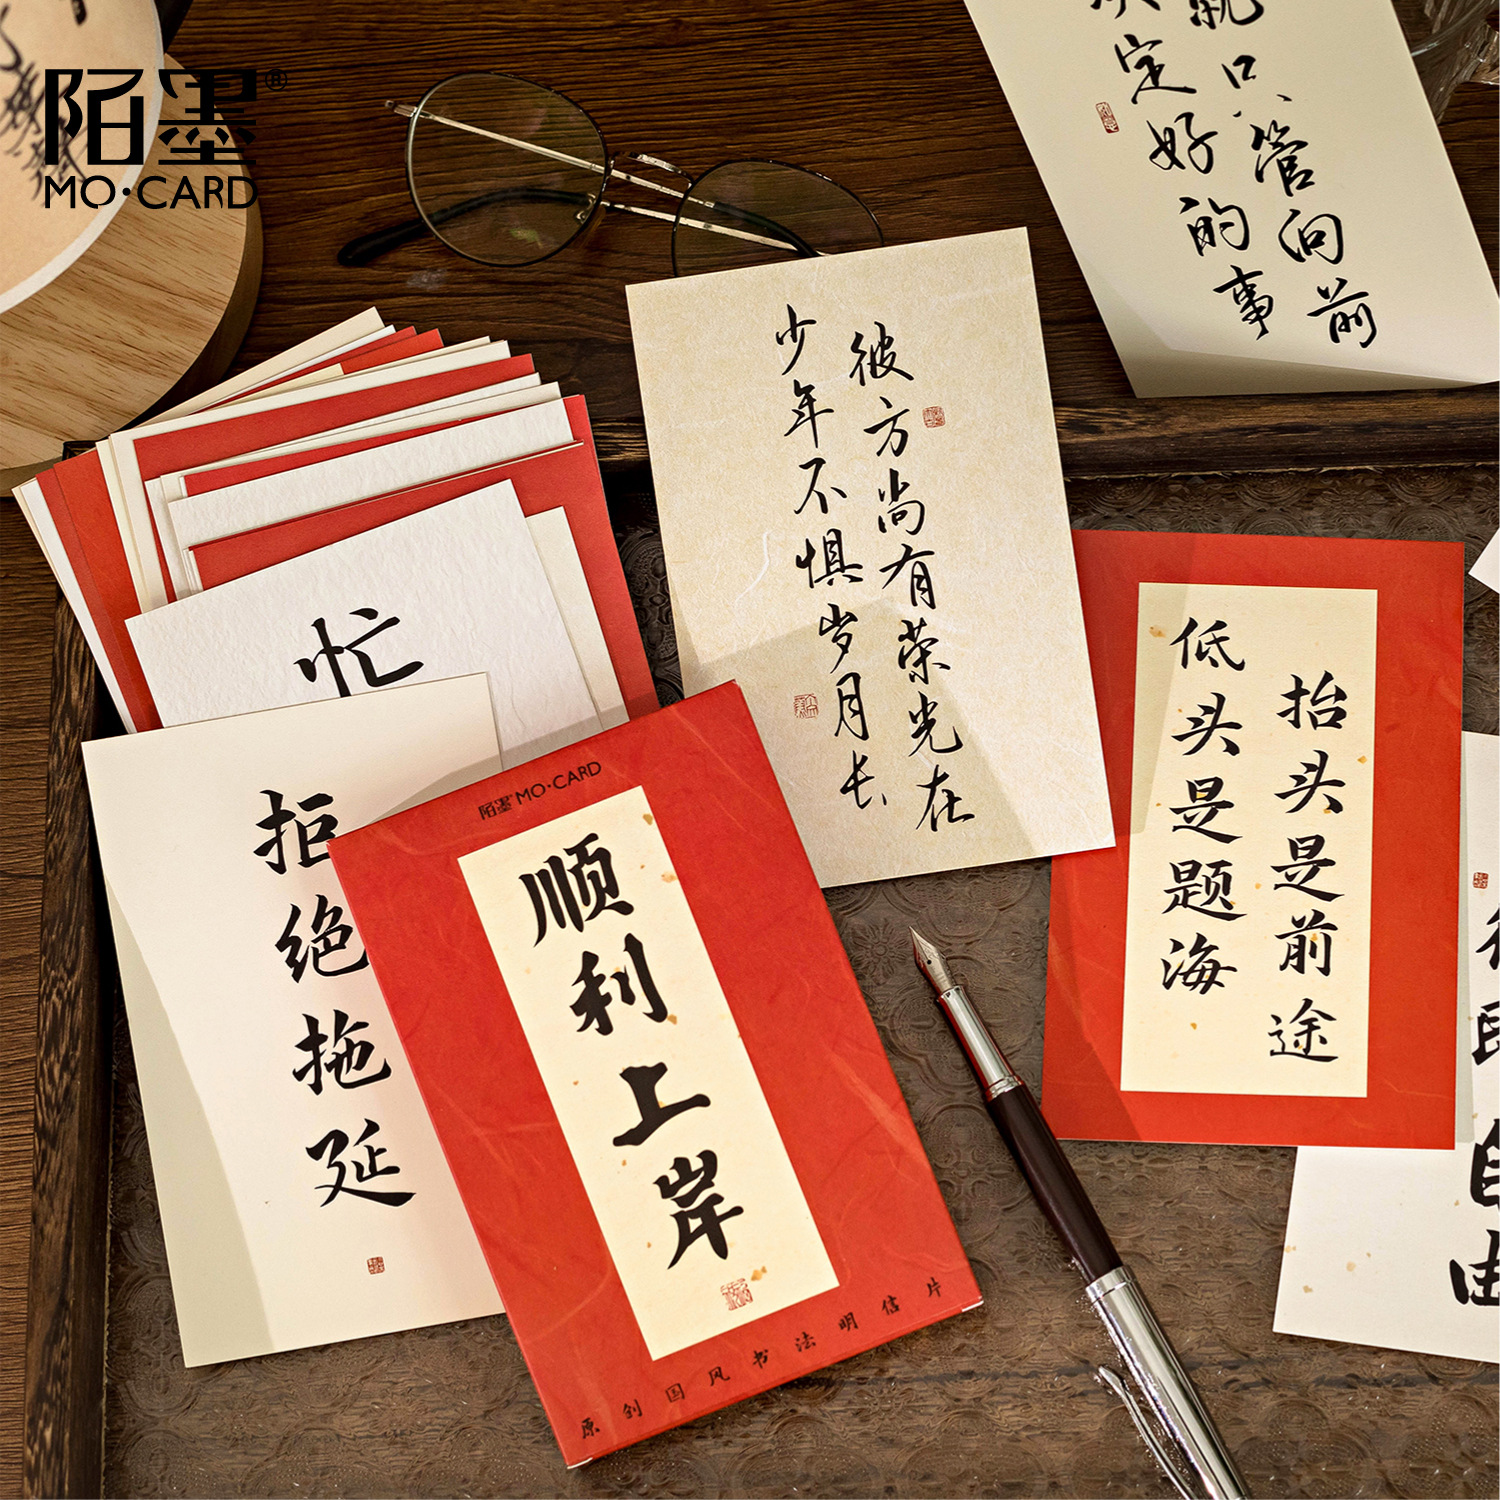 陌墨®
MO·CARD
就只管向前
决定好的事
彼方尚有荣光在
少年不惧岁月长
忙
抬头是前途
低头是题海
拒绝拖延
陌墨 MO·CARD
顺利上岸
原创国风书法明信片
自由